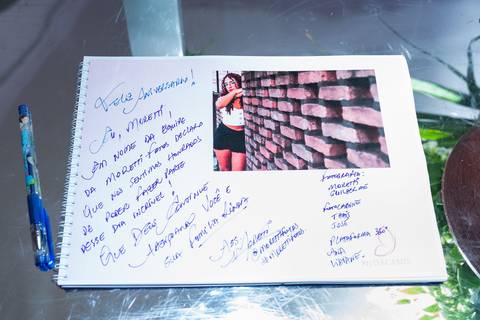 Feliz Aniversário!
Em nome da equipe
da Moretti Fotos declaro
que nos sentimos honrados
de poder fazer parte
desse dia incrível!
Que Deus continue
abençoando você e
sua família linda
Abs
Moretti
@morettifotos
Fotografia:
Moretti
Guilherme
Fotocabine
Thais
José
Plataforma 360°
Ana